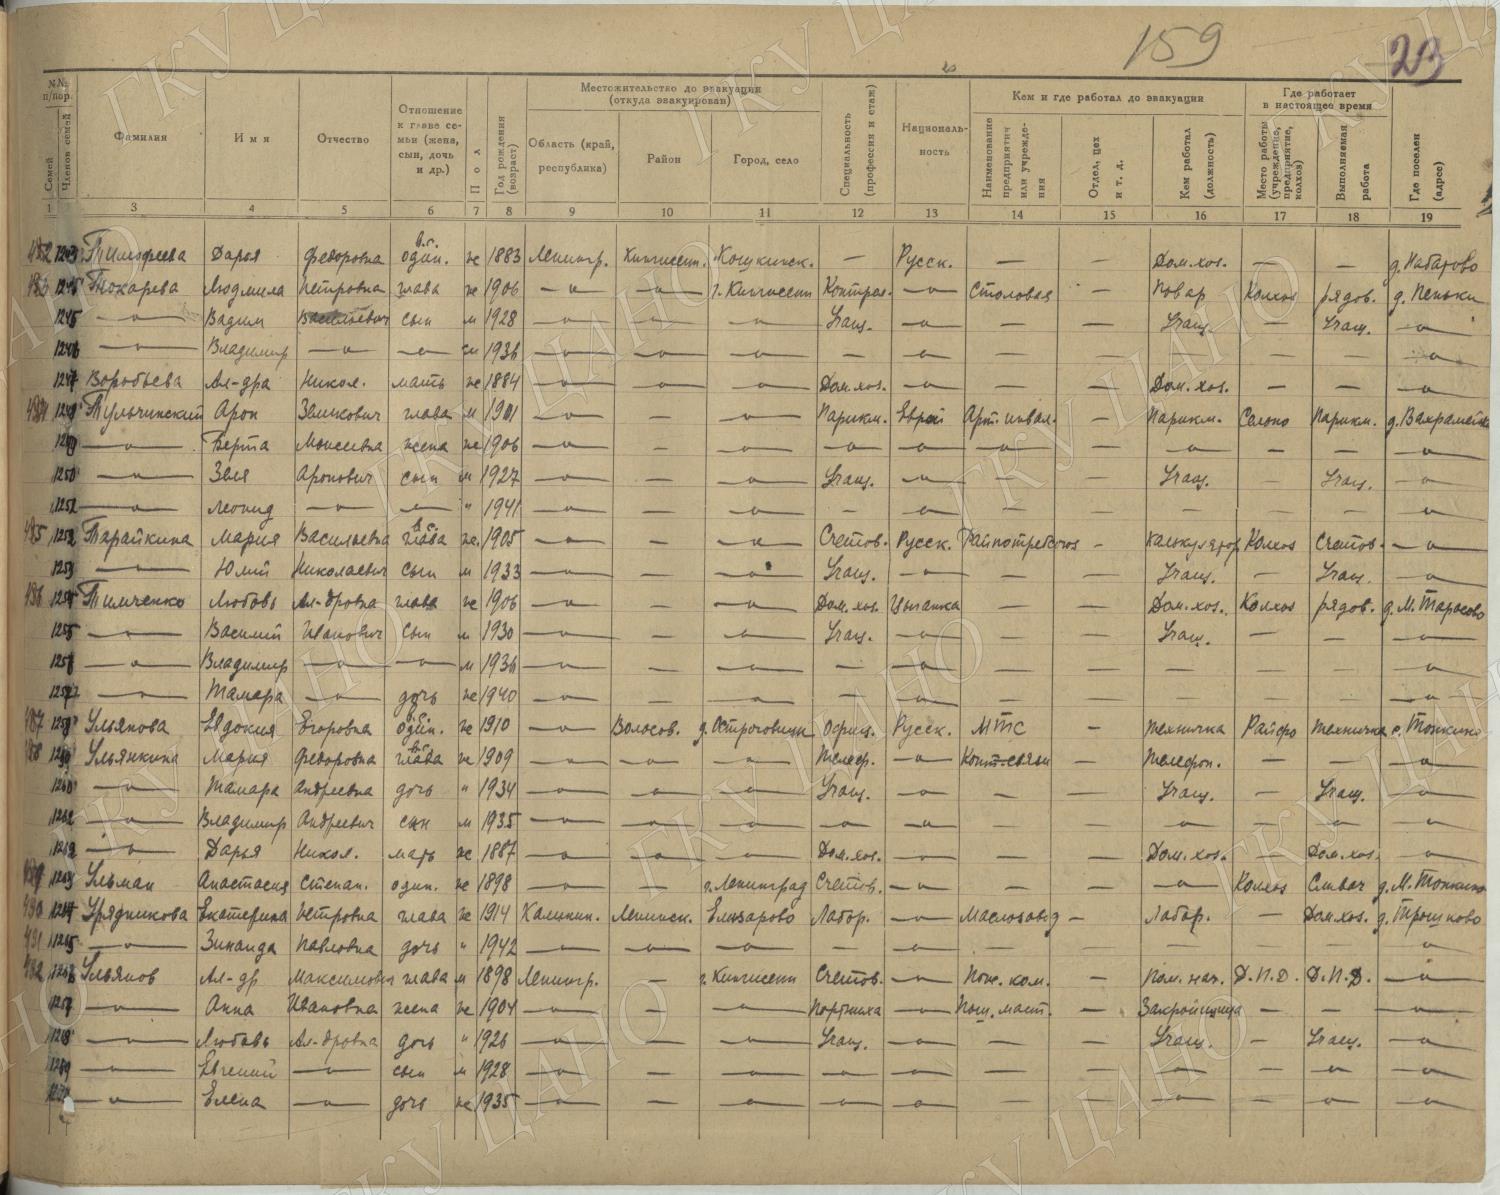 159
23
№№ п/пор.
Семей
Членов семей
Фамилия
Имя
Отчество
Отношение к главе семьи (жена, сын, дочь и др.)
Пол
Год рождения (возраст)
Местожительство до эвакуации (откуда эвакуирован)
Область (край, республика)
Район
Город, село
Специальность (профессия и стаж)
Националь-ность
Кем и где работал до эвакуации
Наименование предприятия или учрежде-ния
Отдел, цех и т. д.
Кем работал (должность)
Где работает в настоящее время
Место работы (учреждение, предприятие, колхоз)
Выполняемая работа
Где поселен (адрес)
1 3 4 5 6 7 8 9 10 11 12 13 14 15 16 17 18 19
482 1243 Тимофеева Дарья Федоровна в.с. один. ж 1883 Ленингр. Кингисепп. Кошкинск. — Русск. Дом. хоз. — — д. Набатово
483 Токарева Людмила Петровна глава ж 1906 —"— —"— г. Кингисепп Контрол. —"— Столовая — Повар Колхоз рядов. д. Пеньки
1245 —"— Вадим Васильевич сын м 1928 —"— —"— —"— Учащ. —"— — — Учащ. — Учащ. —"—
1246 —"— Владимир —"— —"— м 1936 —"— —"— —"— — —"— — — — — —"—
1247 Воробьева Ал-дра Никол. мать ж 1884 —"— —"— —"— Дом. хоз. —"— — — Дом. хоз. — — —"—
484 1248 Тульчинский Арон Зеликович глава м 1901 —"— — —"— Парикм. Еврей Арт. инвал. — Парикм. Сельпо Парикм. д. Вахрамейка
1249 —"— Берта Моисеевна жена ж 1906 —"— — —"— —"— —"— —"— — —"— — — —"—
1250 —"— Зея Аронович сын м 1927 —"— — —"— Учащ. —"— — — Учащ. — Учащ. —"—
1251 —"— Леонид —"— —"— " 1941 —"— — —"— — —"— — — — — — —"—
485 1252 Тарайкина Мария Васильевна в.с. глава ж. 1905 —"— — —"— Счетов. Русск. Райпотребсоюз — Калькулятор Колхоз Счетов. —"—
1253 —"— Юлий Николаевич сын м 1933 —"— — —"— Учащ. —"— — — Учащ. — Учащ. —"—
486 1254 Тимченко Любовь Ал-дровна глава ж 1906 —"— — —"— Дом. хоз. Цыганка — — Дом. хоз. Колхоз рядов. д. М. Тарасово
1255 —"— Василий Иванович сын м 1930 —"— — —"— Учащ. —"— — — Учащ. — — —"—
—"— Владимир —"— —"— м 1936 —"— — —"— — —"— — — — — — —"—
1257 —"— Тамара —"— дочь ж 1940 —"— — —"— — —"— — — — — — —"—
487 1258 Ульянова Евдокия Егоровна в.с. один. ж 1910 —"— Волосов. д. Остроговицы Русск. МТС — техничка Райфо техничка с. Тонкино
488 Ульянкина Мария Федоровна в.с. глава ж 1909 —"— —"— —"— Телеф. —"— Конт. связи — Телефон. — — —"—
1260 —"— Тамара Андреевна дочь " 1934 —"— —"— —"— Учащ. —"— — — Учащ. — Учащ. —"—
—"— Владимир Андреевич сын м 1935 —"— —"— —"— —"— —"— — — —"— — —"— —"—
1262 —"— Дарья Никол. мать ж 1887 —"— —"— —"— Дом. хоз. —"— — — Дом. хоз. — Дом. хоз. —"—
489 1263 Ульман Анастасия Степан. один. ж 1898 —"— — г. Ленинград Счетов. —"— — — —"— Колхоз д. М. Тонкино
490 1264 Урядникова Екатерина Петровна глава ж 1914 Калинин. Ленинск. Елизарово Лабор. —"— Маслозавод — Лабор. — Дом. хоз. д. Трошково
491 1265 —"— Зинаида Павловна дочь " 1942 —"— —"— —"— — —"— — — — — — —"—
492 Ульянов Ал-др Максимович глава м 1898 Ленингр. — г. Кингисепп Счетов. —"— Пож. ком. — Пом. нач. Д.П.Д. Д.П.Д. —"—
1267 —"— Анна Ивановна жена ж 1904 —"— — —"— Портниха —"— Пош. маст. — Закройщица — — —"—
1268 —"— Любовь Ал-дровна дочь " 1926 —"— — —"— Учащ. —"— — — Учащ. — Учащ. —"—
1269 —"— Евгений —"— сын м 1928 —"— — —"— —"— —"— — — —"— — —"— —"—
—"— Елена —"— дочь ж 1935 —"— — —"— —"— —"— — — — — —"— —"—
ГКУ ЦАНО